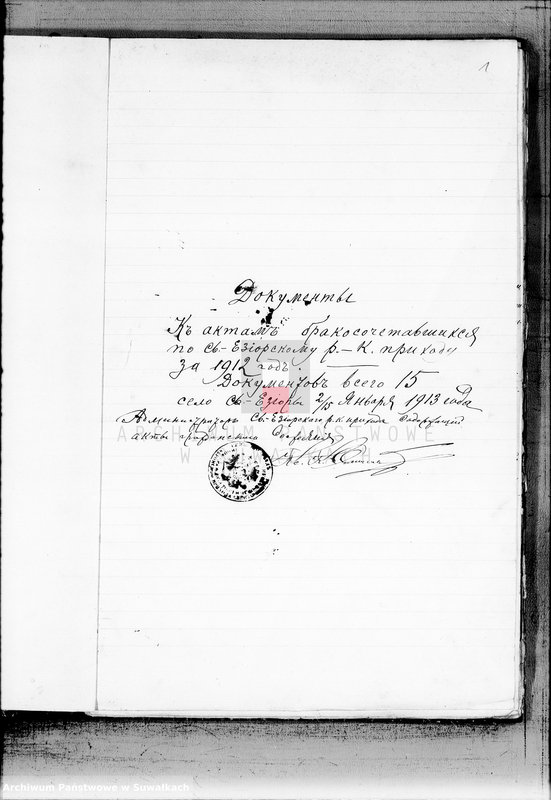 1
Документы
Къ актамъ бракосочетавшихся
по св-Езіорскому р.-К. приходу
за 1912 годъ.
Документовъ всего 15
село св-Езіоры 2/15 Января 1913 года
Администраторъ Св-Езіорскаго р.к. прихода
акты гражданскаго
ARCHIWUM PAŃSTWOWE
W SUWAŁKACH
Archiwum Państwowe w Suwałkach